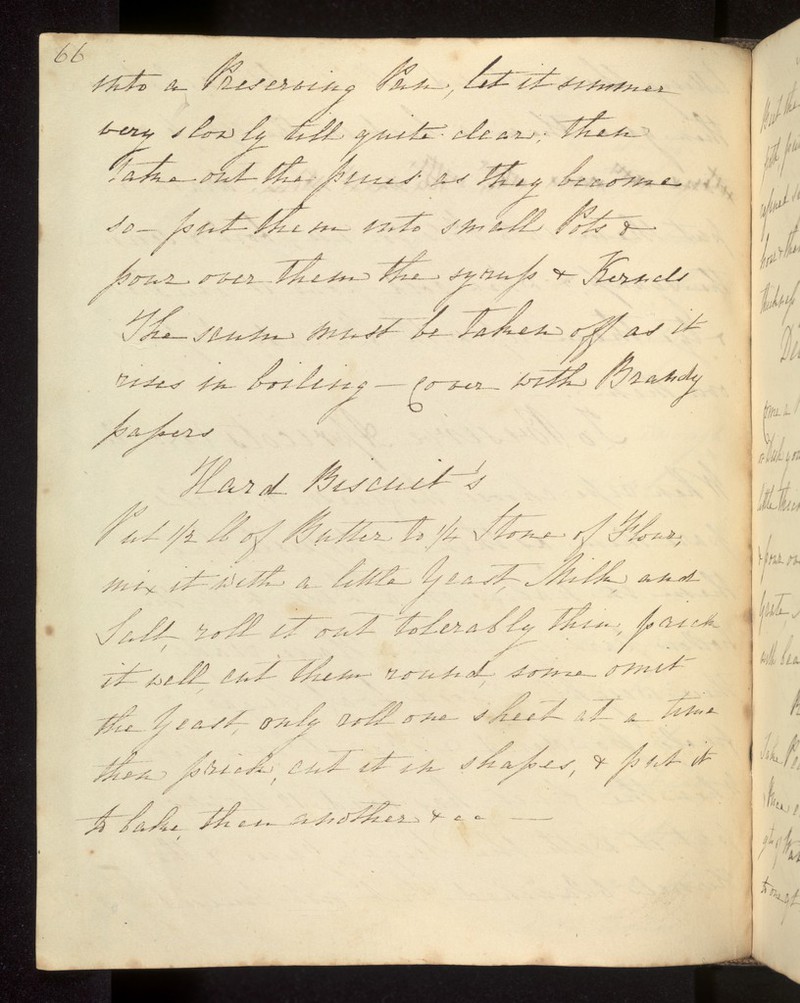 66
into a Preserving Pan, let it simmer
very slowly till quite clear; then
take out the pieces as they become
so - put them into small Pots &
pour over them the syrup & Kernels
The scum must be taken off as it
rises in boiling - Cover with Brandy
papers
Hard Biscuit's
Put 1/2 lb of Butter to 1/4 Stone of Flour,
mix it with a little Yeast, Milk and
Salt, roll it out tolerably thin, prick
it well, cut them round, some omit
the Yeast, only roll one sheet at a time
then prick, cut it in shapes, & put it
to bake, then another &cc —